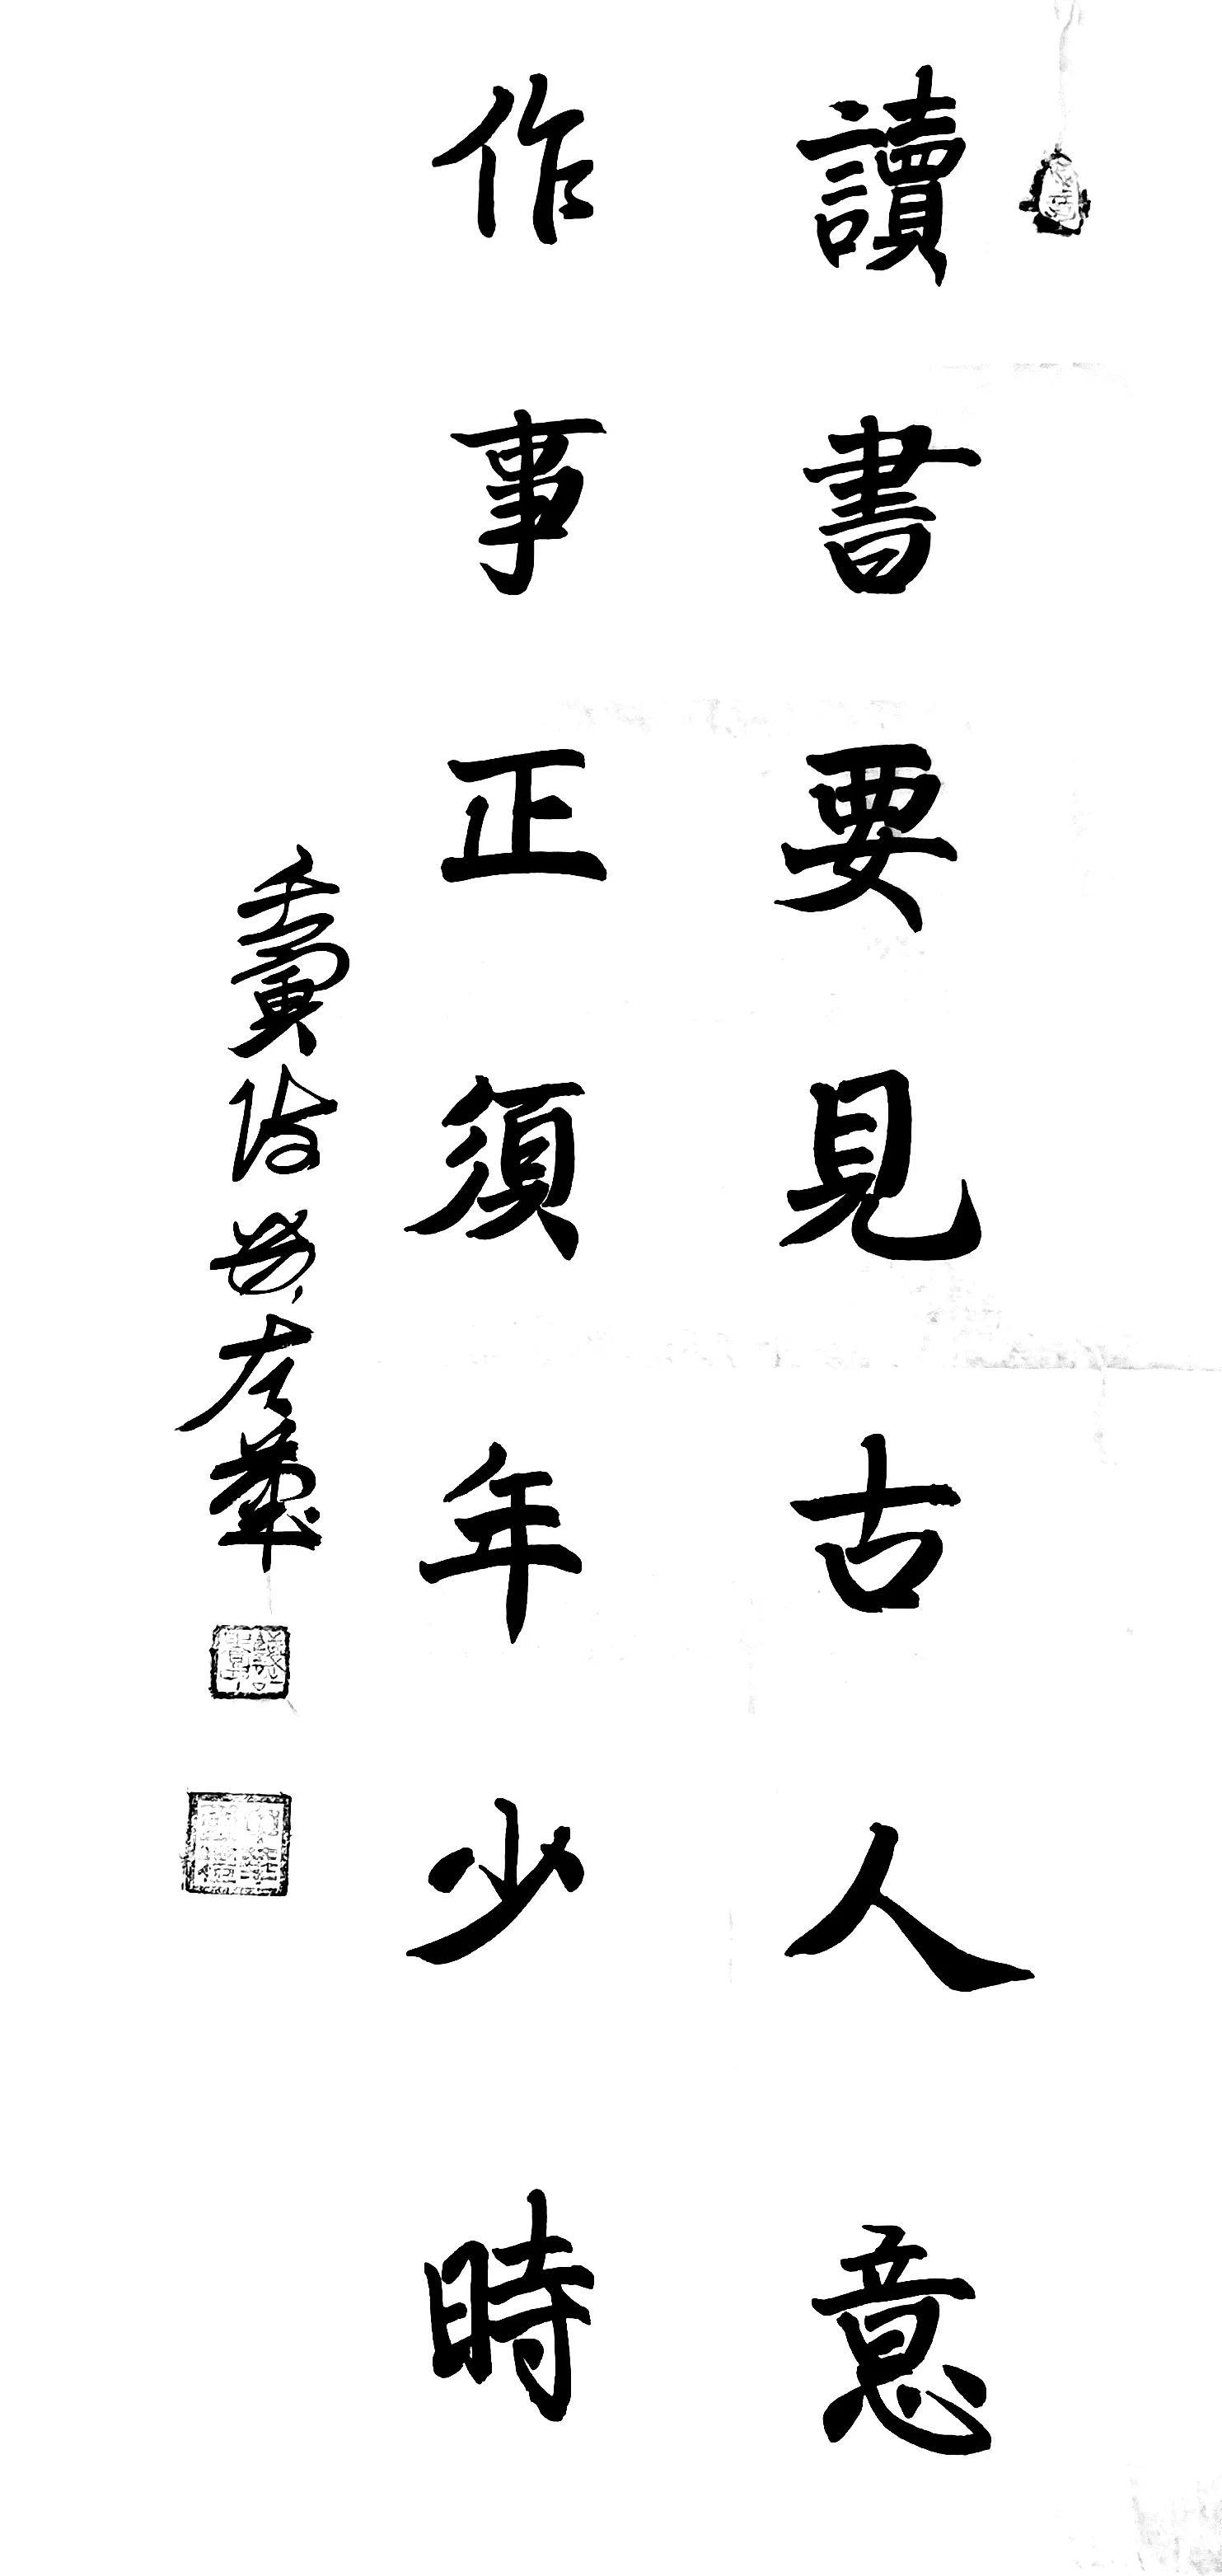 讀書要見古人意
作事正須年少時
壬寅